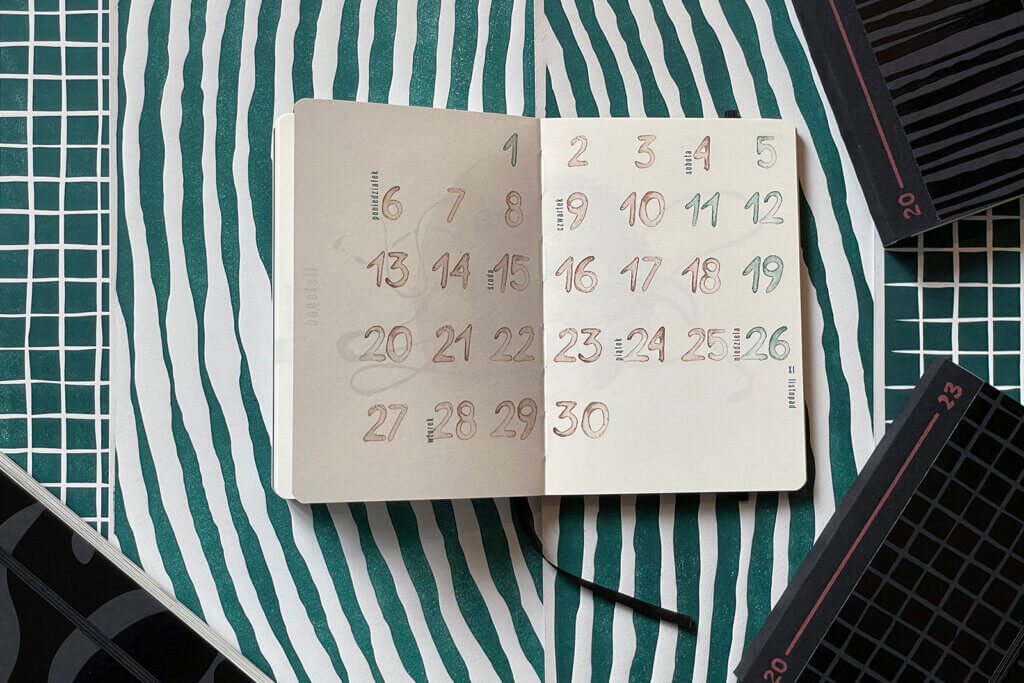 1 2 3 sobota 4 5
poniedziałek 6 7 8 czwartek 9 10 11 12
13 14 środa 15 16 17 18 19
20 21 22 23 piątek 24 25 niedziela 26
XI listopad
27 wtorek 28 29 30
20
20 23